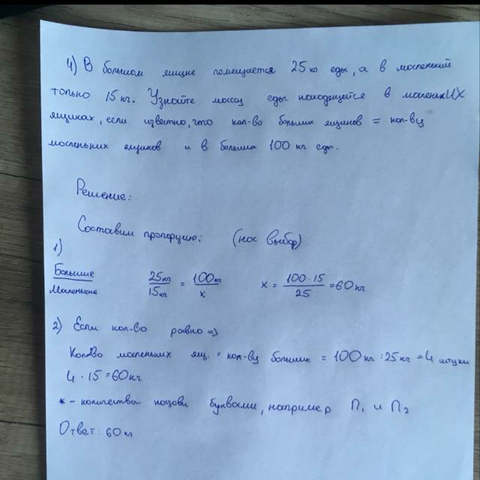 4) В большом ящике помещается 25 кг еды, а в маленький
только 15 кг. Узнайте массу еды находящейся в маленькИХ
ящиках, если известно, что кол-во больших ящиков = кол-ву
маленьких ящиков и в больших 100 кг еды.
Решение:
Составим пропорцию: (на выбор)
1)
Большие 25кг = 100кг x = 100·15 = 60кг
Маленькие 15кг x 25
2) Если кол-во равно =>
КолВо маленьких ящ. = кол-ву больших = 100кг : 25кг = 4 штуки
4 · 15 = 60кг
* - количества назови буквами, например П₁ и П₂
Ответ: 60 кг